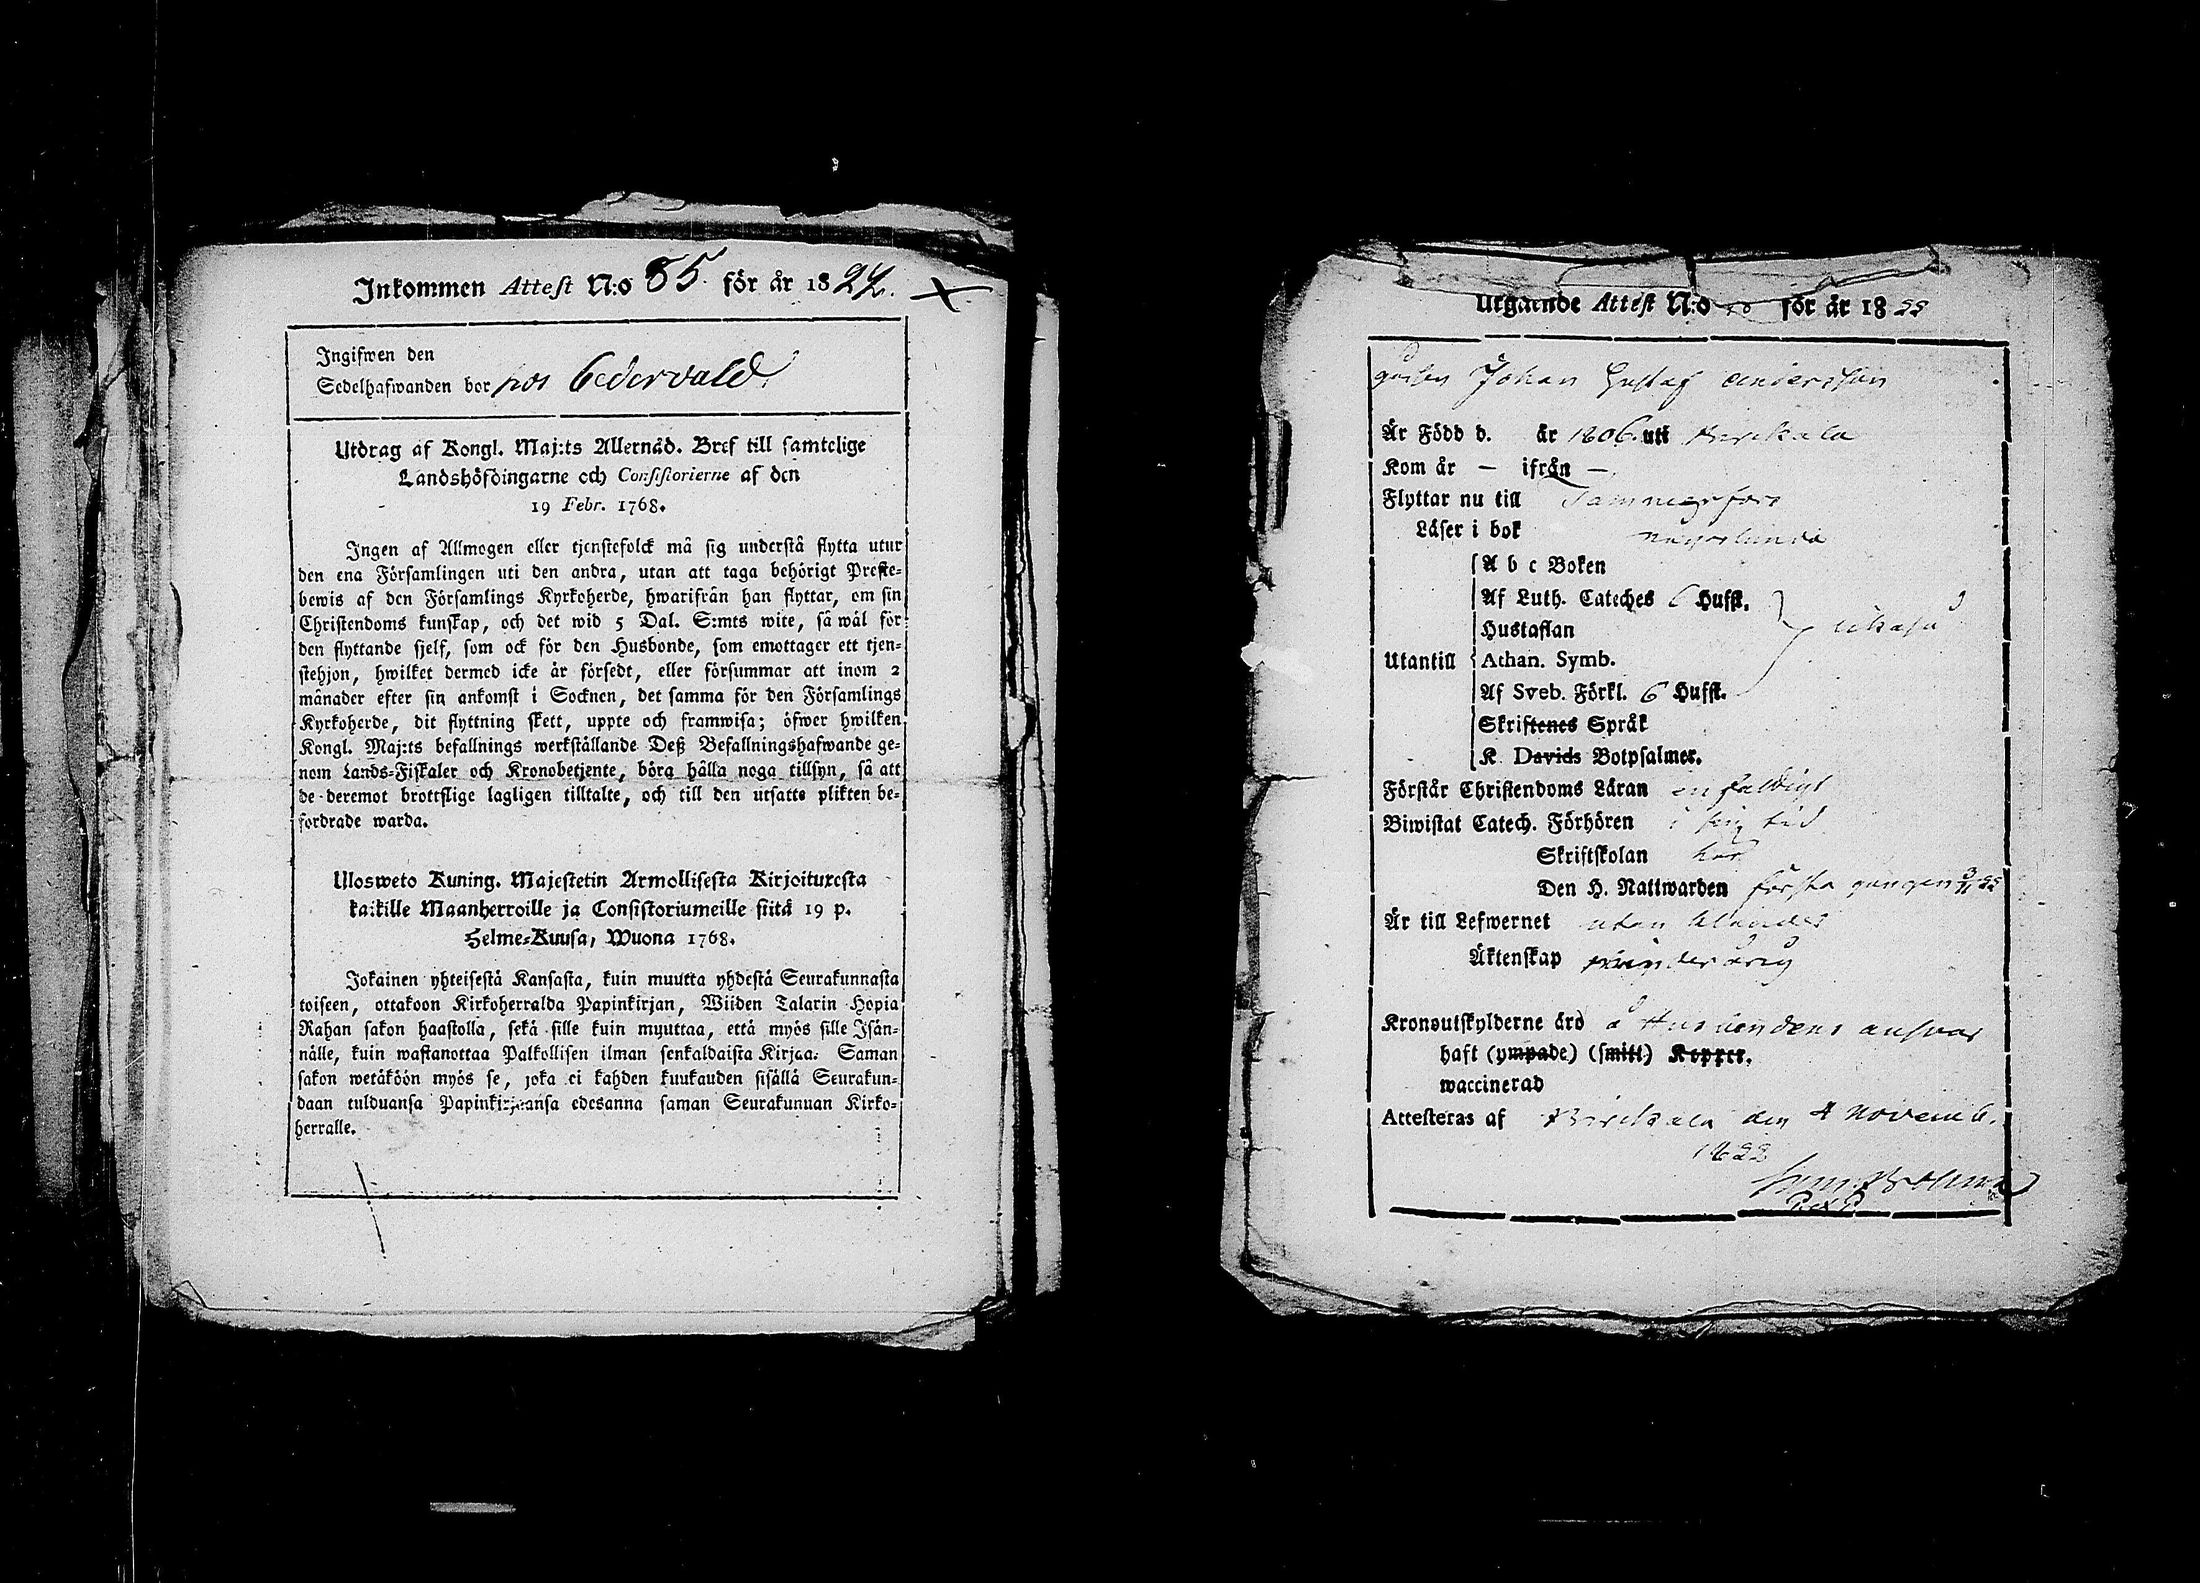 Inkommen Attest N:o 85. för år 1822.
Ingifwen den
Sedelhafwanden bor hos Cedervald.
Utdrag af Kongl. Maj:ts Allernåd. Bref till samtelige
Landshöfdingarne och Consistorierne af den
19 Febr. 1768.
Ingen af Allmogen eller tjenstefolck må sig understå flytta utur
den ena Församlingen uti den andra, utan att taga behörigt Preste-
bewis af den Församlings Kyrkoherde, hwarifrån han flyttar, om sin
Christendoms kunskap, och det wid 5 Dal. S:mts wite, så wäl för
den flyttande sjelf, som ock för den Husbonde, som emottager ett tjen-
stehjon, hwilket dermed icke är försedt, eller försummar att inom 2
månader efter sin ankomst i Socknen, det samma för den Församlings
Kyrkoherde, dit flyttning skett, uppte och framwisa; öfwer hwilken
Kongl. Maj:ts befallnings werkställande Deß Befallningshafwande ge-
nom Lands-Fiskaler och Kronobetjente, böra hålla noga tillsyn, så att
de deremot brottslige lagligen tilltalte, och till den utsatte plikten be-
fordrade warda.
Ulosweto Kuning. Majestetin Armollisesta Kirjoituxesta
kaikille Maanherroille ja Consistoriumeille siitä 19 p.
Helme-Kuusa, Wuona 1768.
Jokainen yhteisestä Kansasta, kuin muutta yhdestä Seurakunnasta
toiseen, ottakoon Kirkoherralda Papinkirjan, Wiiden Talarin Hopia
Rahan sakon haastolla, sekä sille kuin muuttaa, että myös sille Isän-
nälle, kuin wastanottaa Palkollisen ilman senkaldaista Kirjaa: Saman
sakon wetäköön myös se, joka ei kahden kuukauden sisällä Seurakun-
daan tulduansa Papinkirjaansa edesanna saman Seurakunuan Kirko-
herralle.
Utgående Attest N:o för år 1822
Gossen Johan Gustaf Andersson
Är Född d. år 1806. uti Birckala
Kom år — ifrån —
Flyttar nu till Tammerfors
Läser i bok någorlunda
A b c Boken
Af Luth. Cateches 6 Hufst.
Hustaflan
Utantill Athan. Symb.
Af Sveb. Förkl. 6 Hufst.
Skriftenes Språk
K. Davids Botpsalmer.
Förstår Christendoms Läran enfaldigt
Biwistat Catech. Förhören i sin tid
Skriftskolan här
Den H. Nattwarden första gången 3/11 22
Är till Lefwernet utan klander
Äktenskap minderårig
Kronoutskylderne äro å Husbondens answar
haft (ympade) (smitt) Koppor.
waccinerad
Attesteras af Birckala den 4 Novemb.
1822